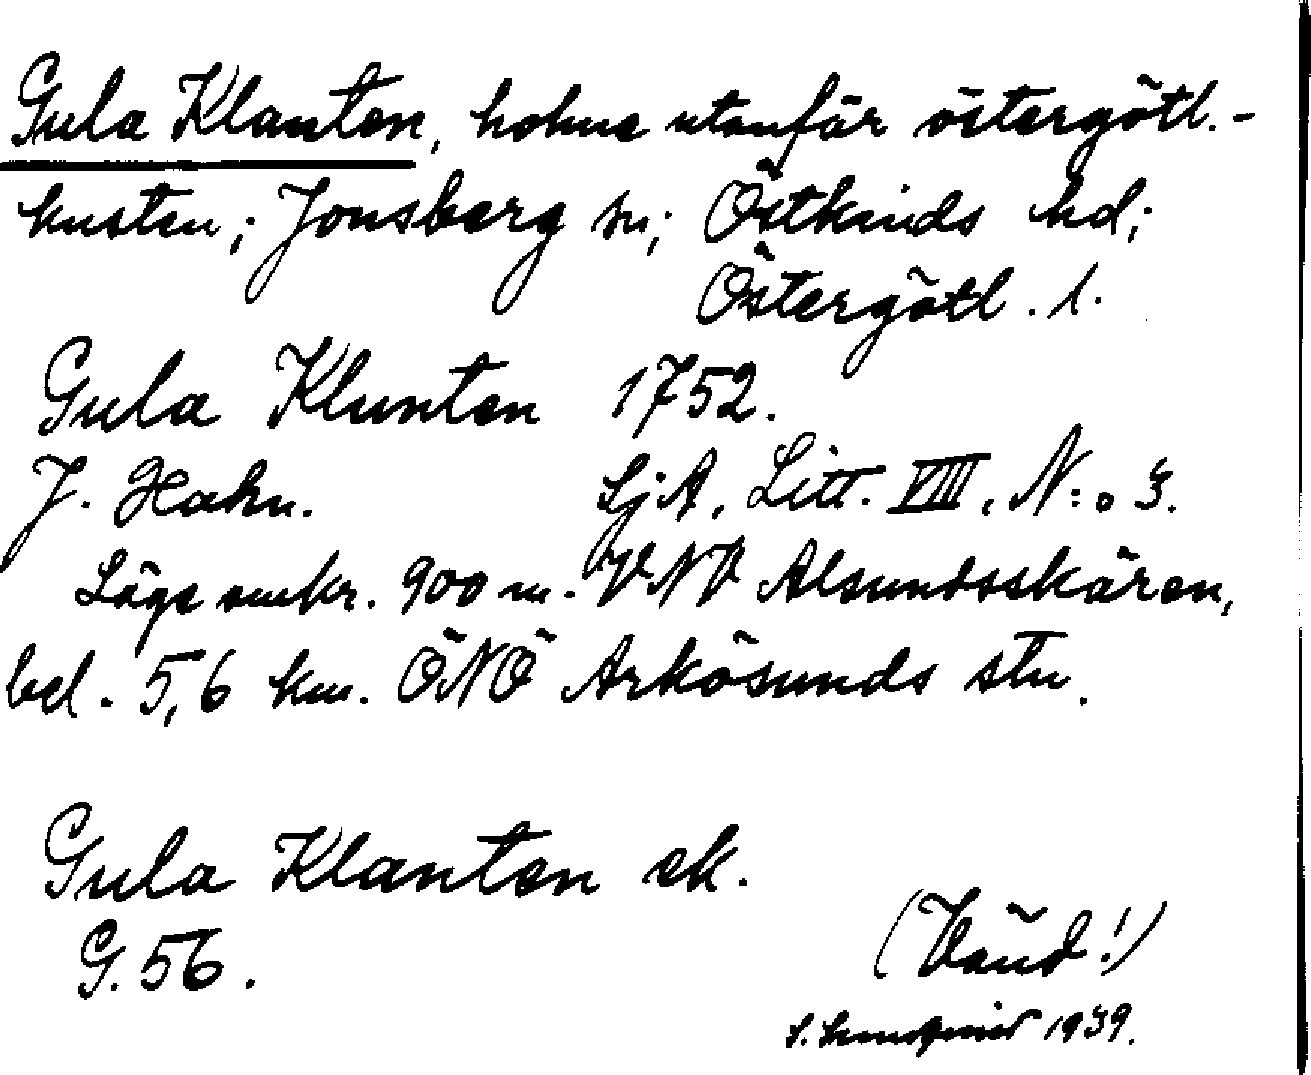 Gula Klanten, holme utanför östergötl.-
kusten; Jonsberg sn; Östkinds hd;
Östergötl. l.
Gula Klunten 1752.
J. Hahn. SjA, Litt. VIII, N:o 3.
Läge omkr. 900 m. VNV Alsundsskären,
bel. 5,6 km. ÖNÖ Arkösunds stn.
Gula Klanten ek.
G. 56.
(Vänd!)
1939.